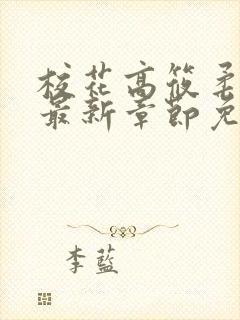 校花高筱柔
最新章節免
李藍